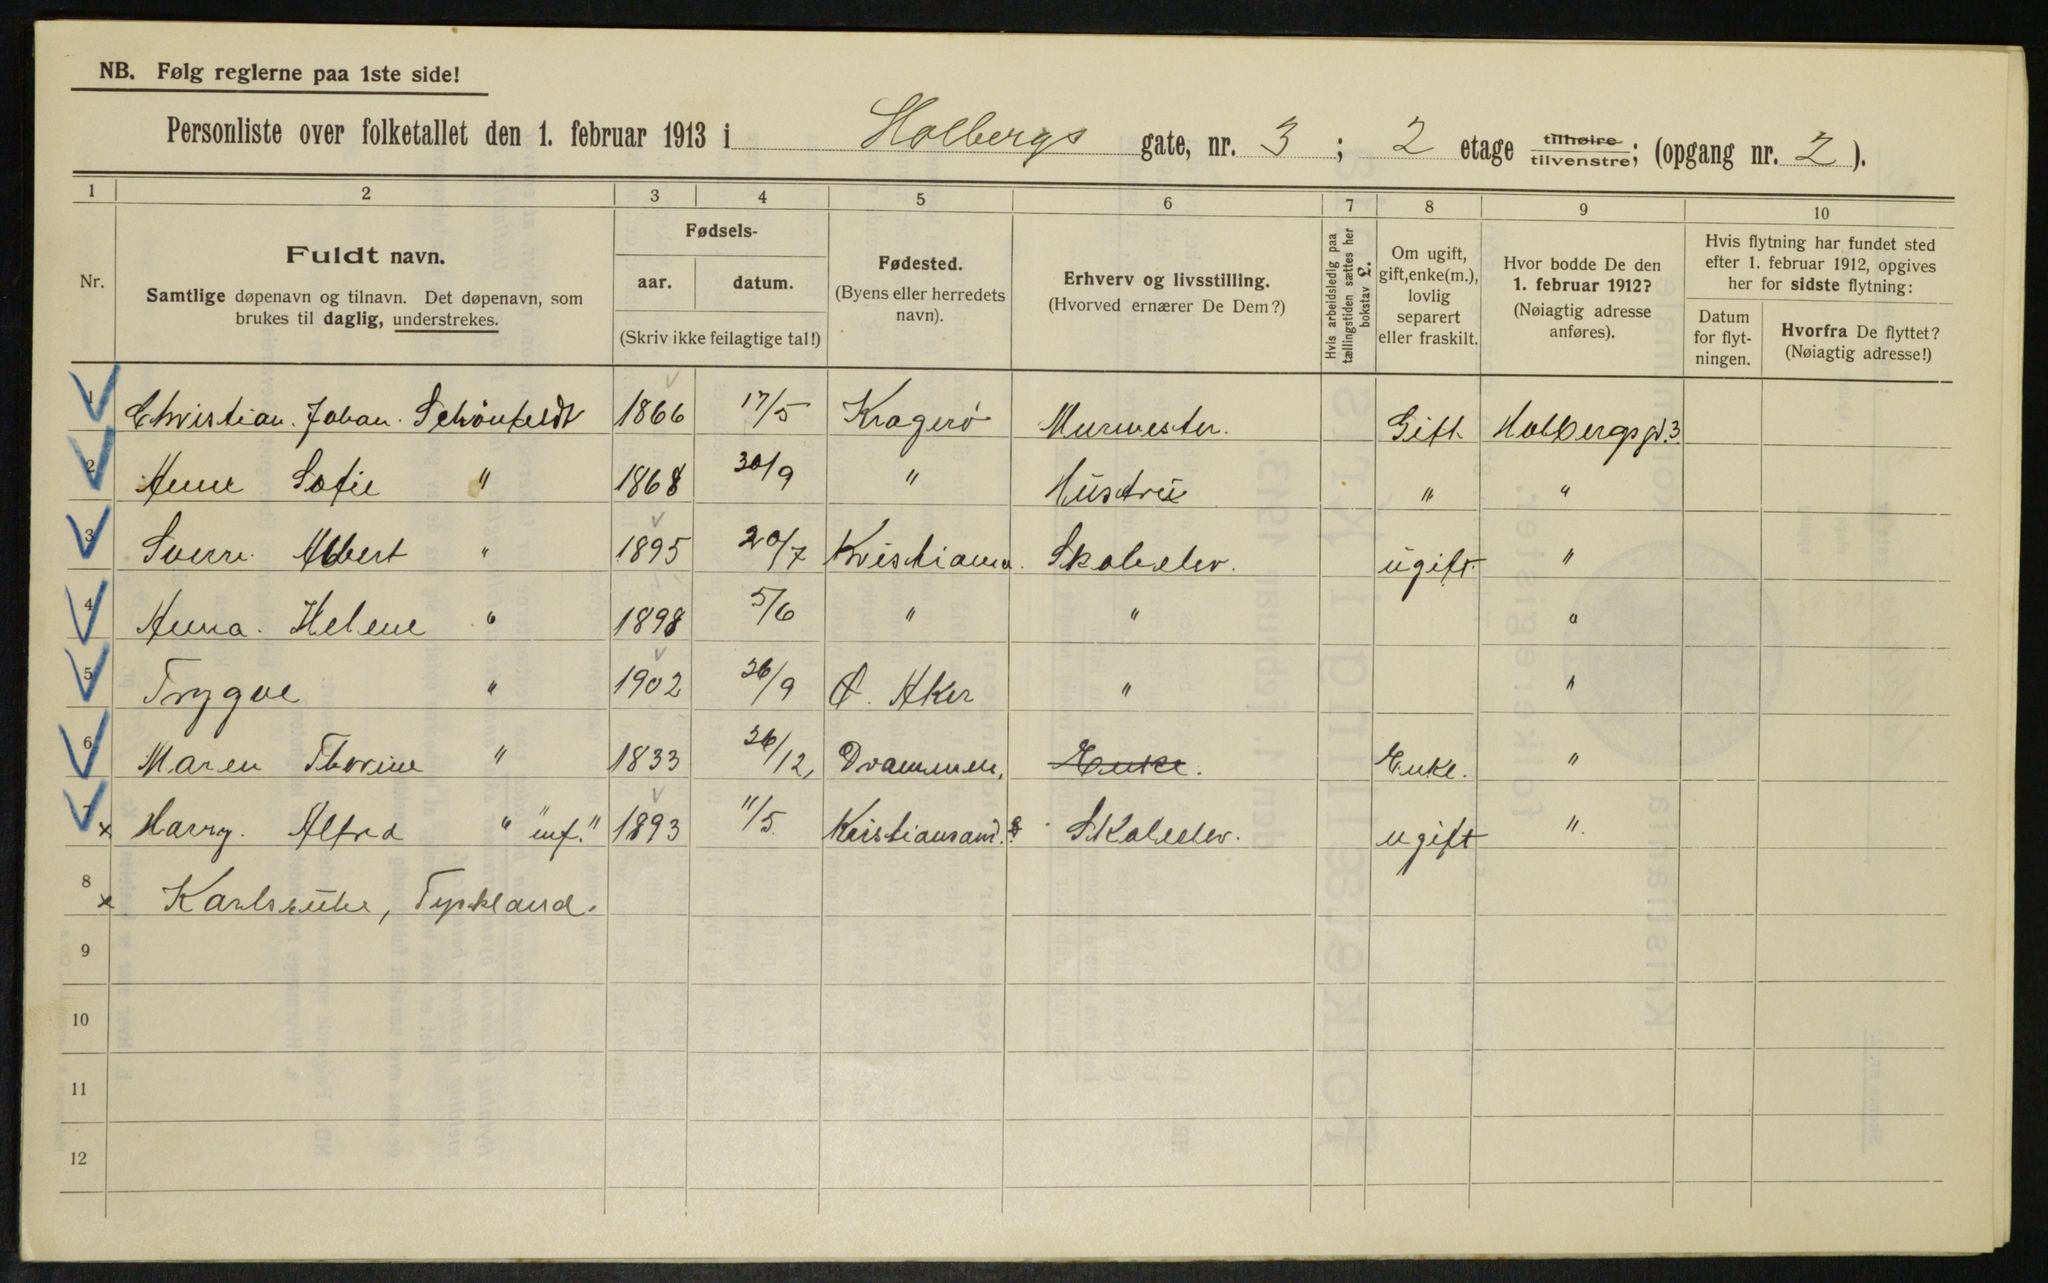 NB. Følg reglerne paa 1ste side!
Personliste over folketallet den 1. februar 1913 i Holbergs gate, nr. 3 ; 2 etage tilhøire tilvenstre; (opgang nr. 2 ).
1 2 3 4 5 6 7 8 9 10
Nr.
Fuldt navn.
Samtlige døpenavn og tilnavn. Det døpenavn, som
brukes til daglig, understrekes.
Fødsels-
aar. datum.
(Skriv ikke feilagtige tal!)
Fødested.
(Byens eller herredets
navn).
Erhverv og livsstilling.
(Hvorved ernærer De Dem?)
Hvis arbeidsledig paa
tællingstiden sættes her
bokstav L.
Om ugift,
gift, enke(m.),
lovlig
separert
eller fraskilt.
Hvor bodde De den
1. februar 1912?
(Nøiagtig adresse
anføres).
Hvis flytning har fundet sted
efter 1. februar 1912, opgives
her for sidste flytning:
Datum
for flyt-
ningen.
Hvorfra De flyttet?
(Nøiagtig adresse!)
1 Christian Johan Schönfeldt 1866 17/5 Kragerö Murmester. Gift Holbergs gd. 3.
2 Anne Sofie " 1868 30/9 " Hustru " "
3 Sverre Albert " 1895 20/7 Kristiania. Skoleelev. ugift. "
4 Anna Helene " 1898 5/6 " " "
5 Trygve " 1902 26/9 Ø. Aker " "
6 Maren Thorine " 1833 26/12, Drammen, Enke. Enke. "
7 x Harry Alfred " "inf." 1893 11/5 Kristiansand. S Skoleelev. ugift "
8 x Karlsruhe, Tyskland.
9
10
11
12